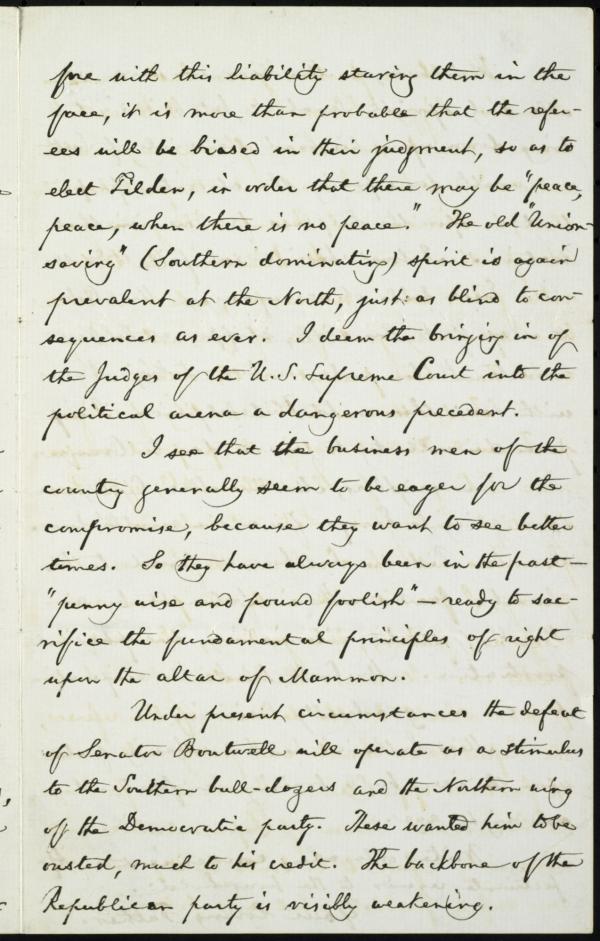 fore with this liability staring them in the
face, it is more than probable that the refer-
ees will be biased in their judgment, so as to
elect Tilden, in order that there may be "peace,
peace, when there is no peace." The old "Union-
saving" (Southern dominating) spirit is again
prevalent at the North, just as blind to con-
sequences as ever. I deem the bringing in of
the Judges of the U.S. Supreme Court into the
political arena a dangerous precedent.
I see that the business men of the
country generally seem to be eager for the
compromise, because they want to see better
times. So they have always been in the past—
"penny wise and pound foolish"—ready to sac-
rifice the fundamental principles of right
upon the altar of Mammon.
Under present circumstances the defeat
of Senator Boutwell will operate as a stimulus
to the Southern bull-dozers and the Northern wing
of the Democratic party. These wanted him to be
ousted, much to his credit. The backbone of the
Republican party is visibly weakening.